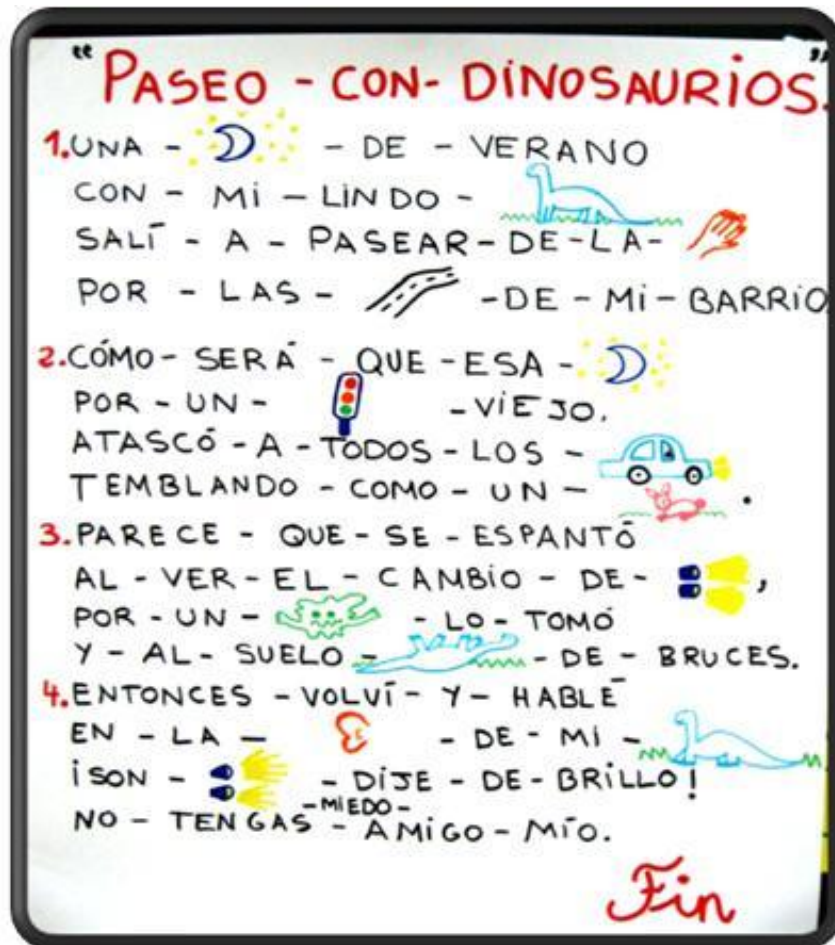 "PASEO - CON - DINOSAURIOS."
1. UNA - - DE - VERANO
CON - MI - LINDO -
SALÍ - A - PASEAR - DE - LA -
POR - LAS - - DE - MI - BARRIO
2. CÓMO - SERÁ - QUE - ESA -
POR - UN - - VIEJO.
ATASCÓ - A - TODOS - LOS -
TEMBLANDO - COMO - UN - .
3. PARECE - QUE - SE - ESPANTÓ
AL - VER - EL - CAMBIO - DE - ,
POR - UN - - LO - TOMÓ
Y - AL - SUELO - - DE - BRUCES.
4. ENTONCES - VOLVÍ - Y - HABLÉ
EN - LA - - DE - MI -
¡SON - - DIJE - DE - BRILLO!
NO - TENGAS - MIEDO - AMIGO - MÍO.
Fin